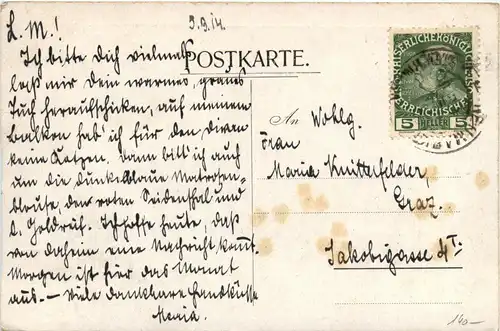 3.9.14.
L. M.!
Ich bitte Dich vielmals
laß mir Dein warmes, graues
Tuch heraufschicken, auf meinem
Balkon hab' ich für den Diwan
keine Kotzen. Dann bitt' ich auch
um die dunkelblaue Matrosen-
blouse den roten Seidenshal und
d. Ich hoffe heute, daß
von daheim eine Nachricht kommt.
Morgen ist für das Monat
aus. – Viele dankbare Handküsse
Maria.
POSTKARTE.
KAISERLICHEKÖNIGL
ERREICHISCHE
5 HELLER 5
An Wohlg.
Frau
Maria Knittelfelder,
Graz.
Jakobigasse 4 I.
140.-